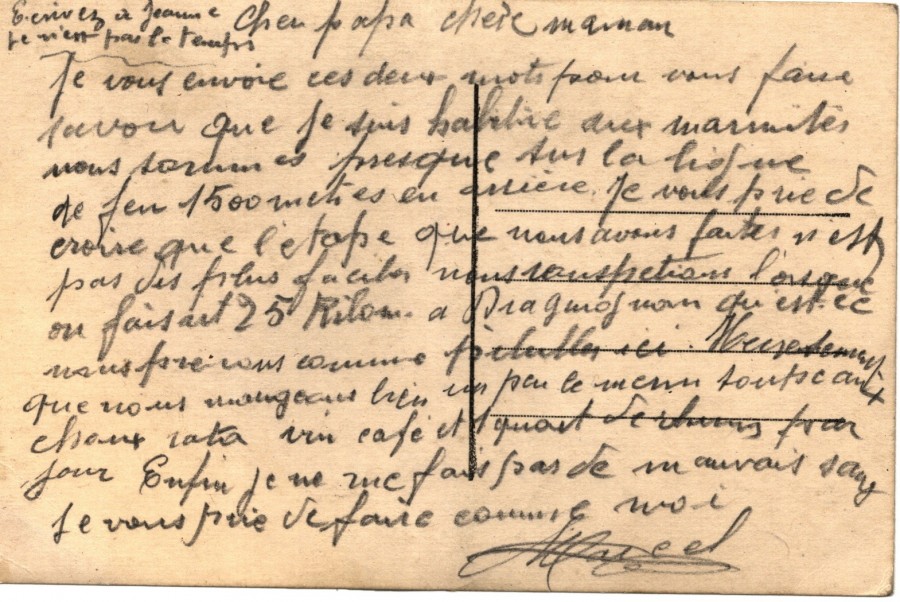 Ecrivez a Jeanne
je n'est pas le temps
Cher papa chère maman
Je vous envoie ces deux mots pour vous faire
savoir que je suis habitué aux marmites
nous sommes presque sur la ligne
de feu 1500 metres en arrière. Je vous prie de
croire que l'etape que nous avons faites n'est
pas des plus faciles nous rouspetions lorsque
on faisait 25 Kilom. a Draguignan qu'est-ce
nous prenons comme ici. Heureusement
que nous mangeons bien un peu le menu
choux rata vin café et 1 quart de rhum par
jour Enfin je ne me fais pas de mauvais sang
Je vous prie de faire comme moi
Marcel